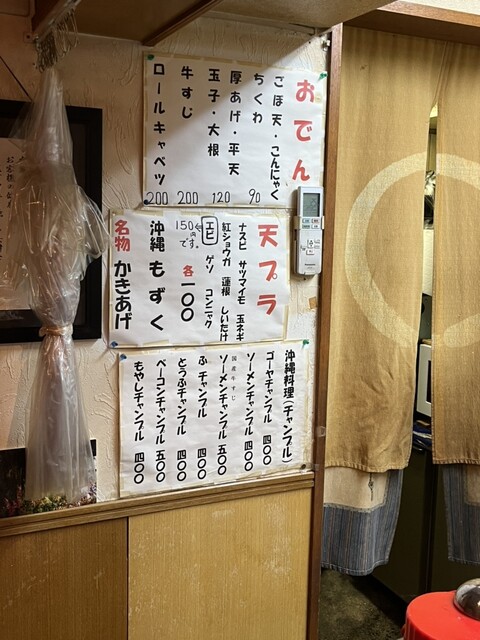 おでん
ごぼ天・こんにゃく
ちくわ 90
厚あげ・平天
玉子・大根 120
牛すじ 200
ロールキャベツ 200
天プラ
ナスビ サツマイモ 玉ネギ
紅ショウガ 蓮根 しいたけ
エビ ゲソ コンニャク
150円です。
各一〇〇
沖縄もずく
名物 かきあげ
沖縄料理(チャンプル)
ゴーヤチャンプル 四〇〇
ソーメンチャンプル 四〇〇
国産牛すじ
ソーメンチャンプル 五〇〇
ふチャンプル 四〇〇
とうふチャンプル 四〇〇
ベーコンチャンプル 五〇〇
もやしチャンプル 四〇〇